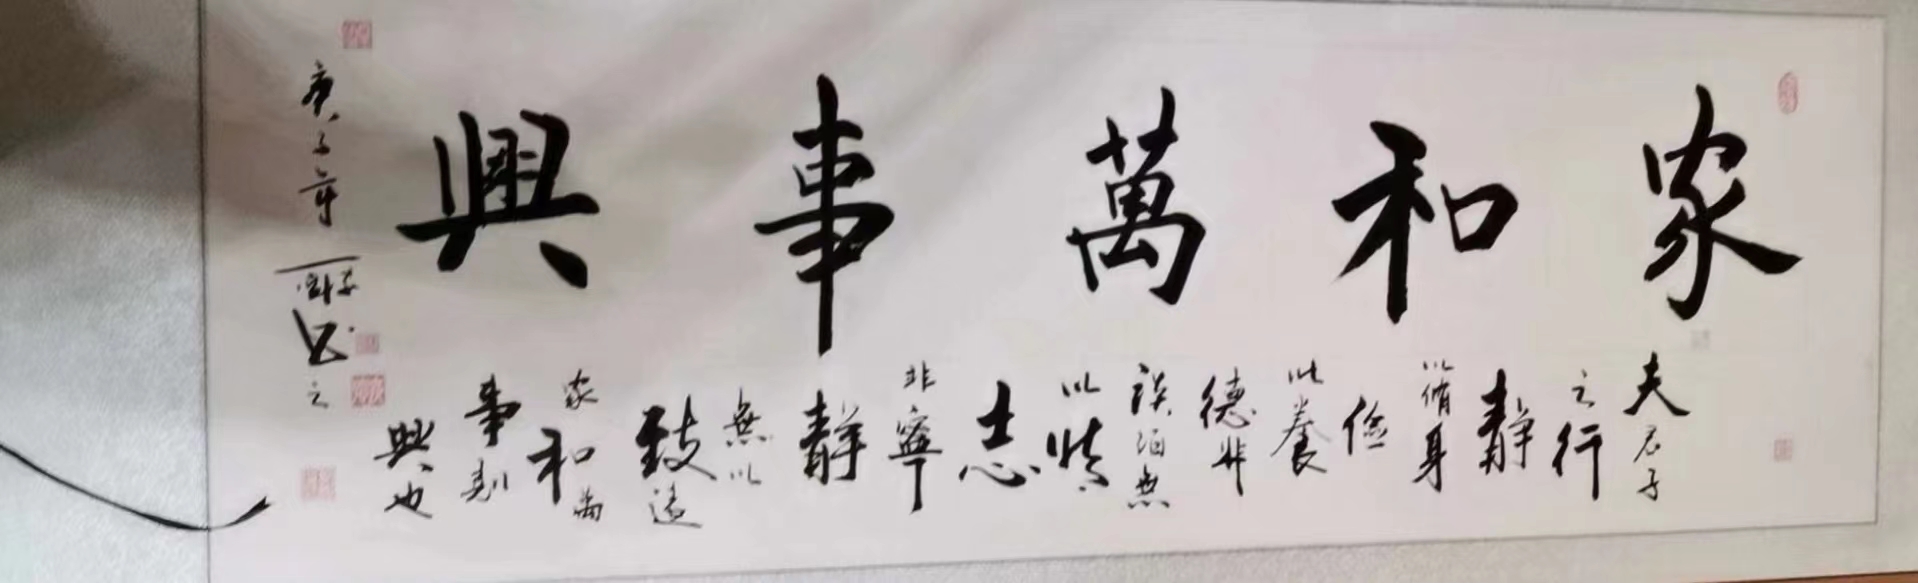 家和萬事興
夫君子
之行
静
以脩身
儉
以養
德非
淡泊無
以
志
非寧
靜
無以
致遠
家和萬
事則
興也
庚子年
书之